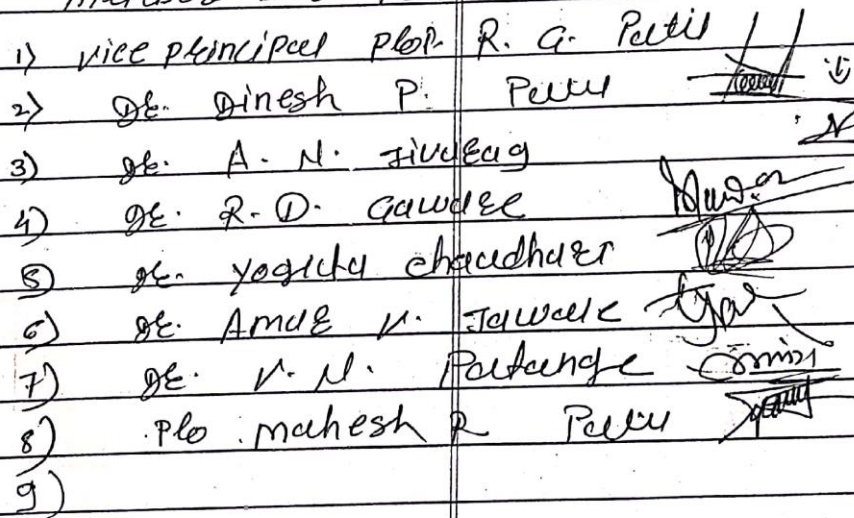 1) vice principal prof. R. G. Patil
2) Dr. Dinesh P. Patil
3) Dr. A. N. Jivrag
4) Dr. R. D. Gawdre
5) Dr. Yogita chaudhari
6) Dr. Amar V. Jawale
7) Dr. V. N. Patange
8) Pro. mahesh R Patil
9)